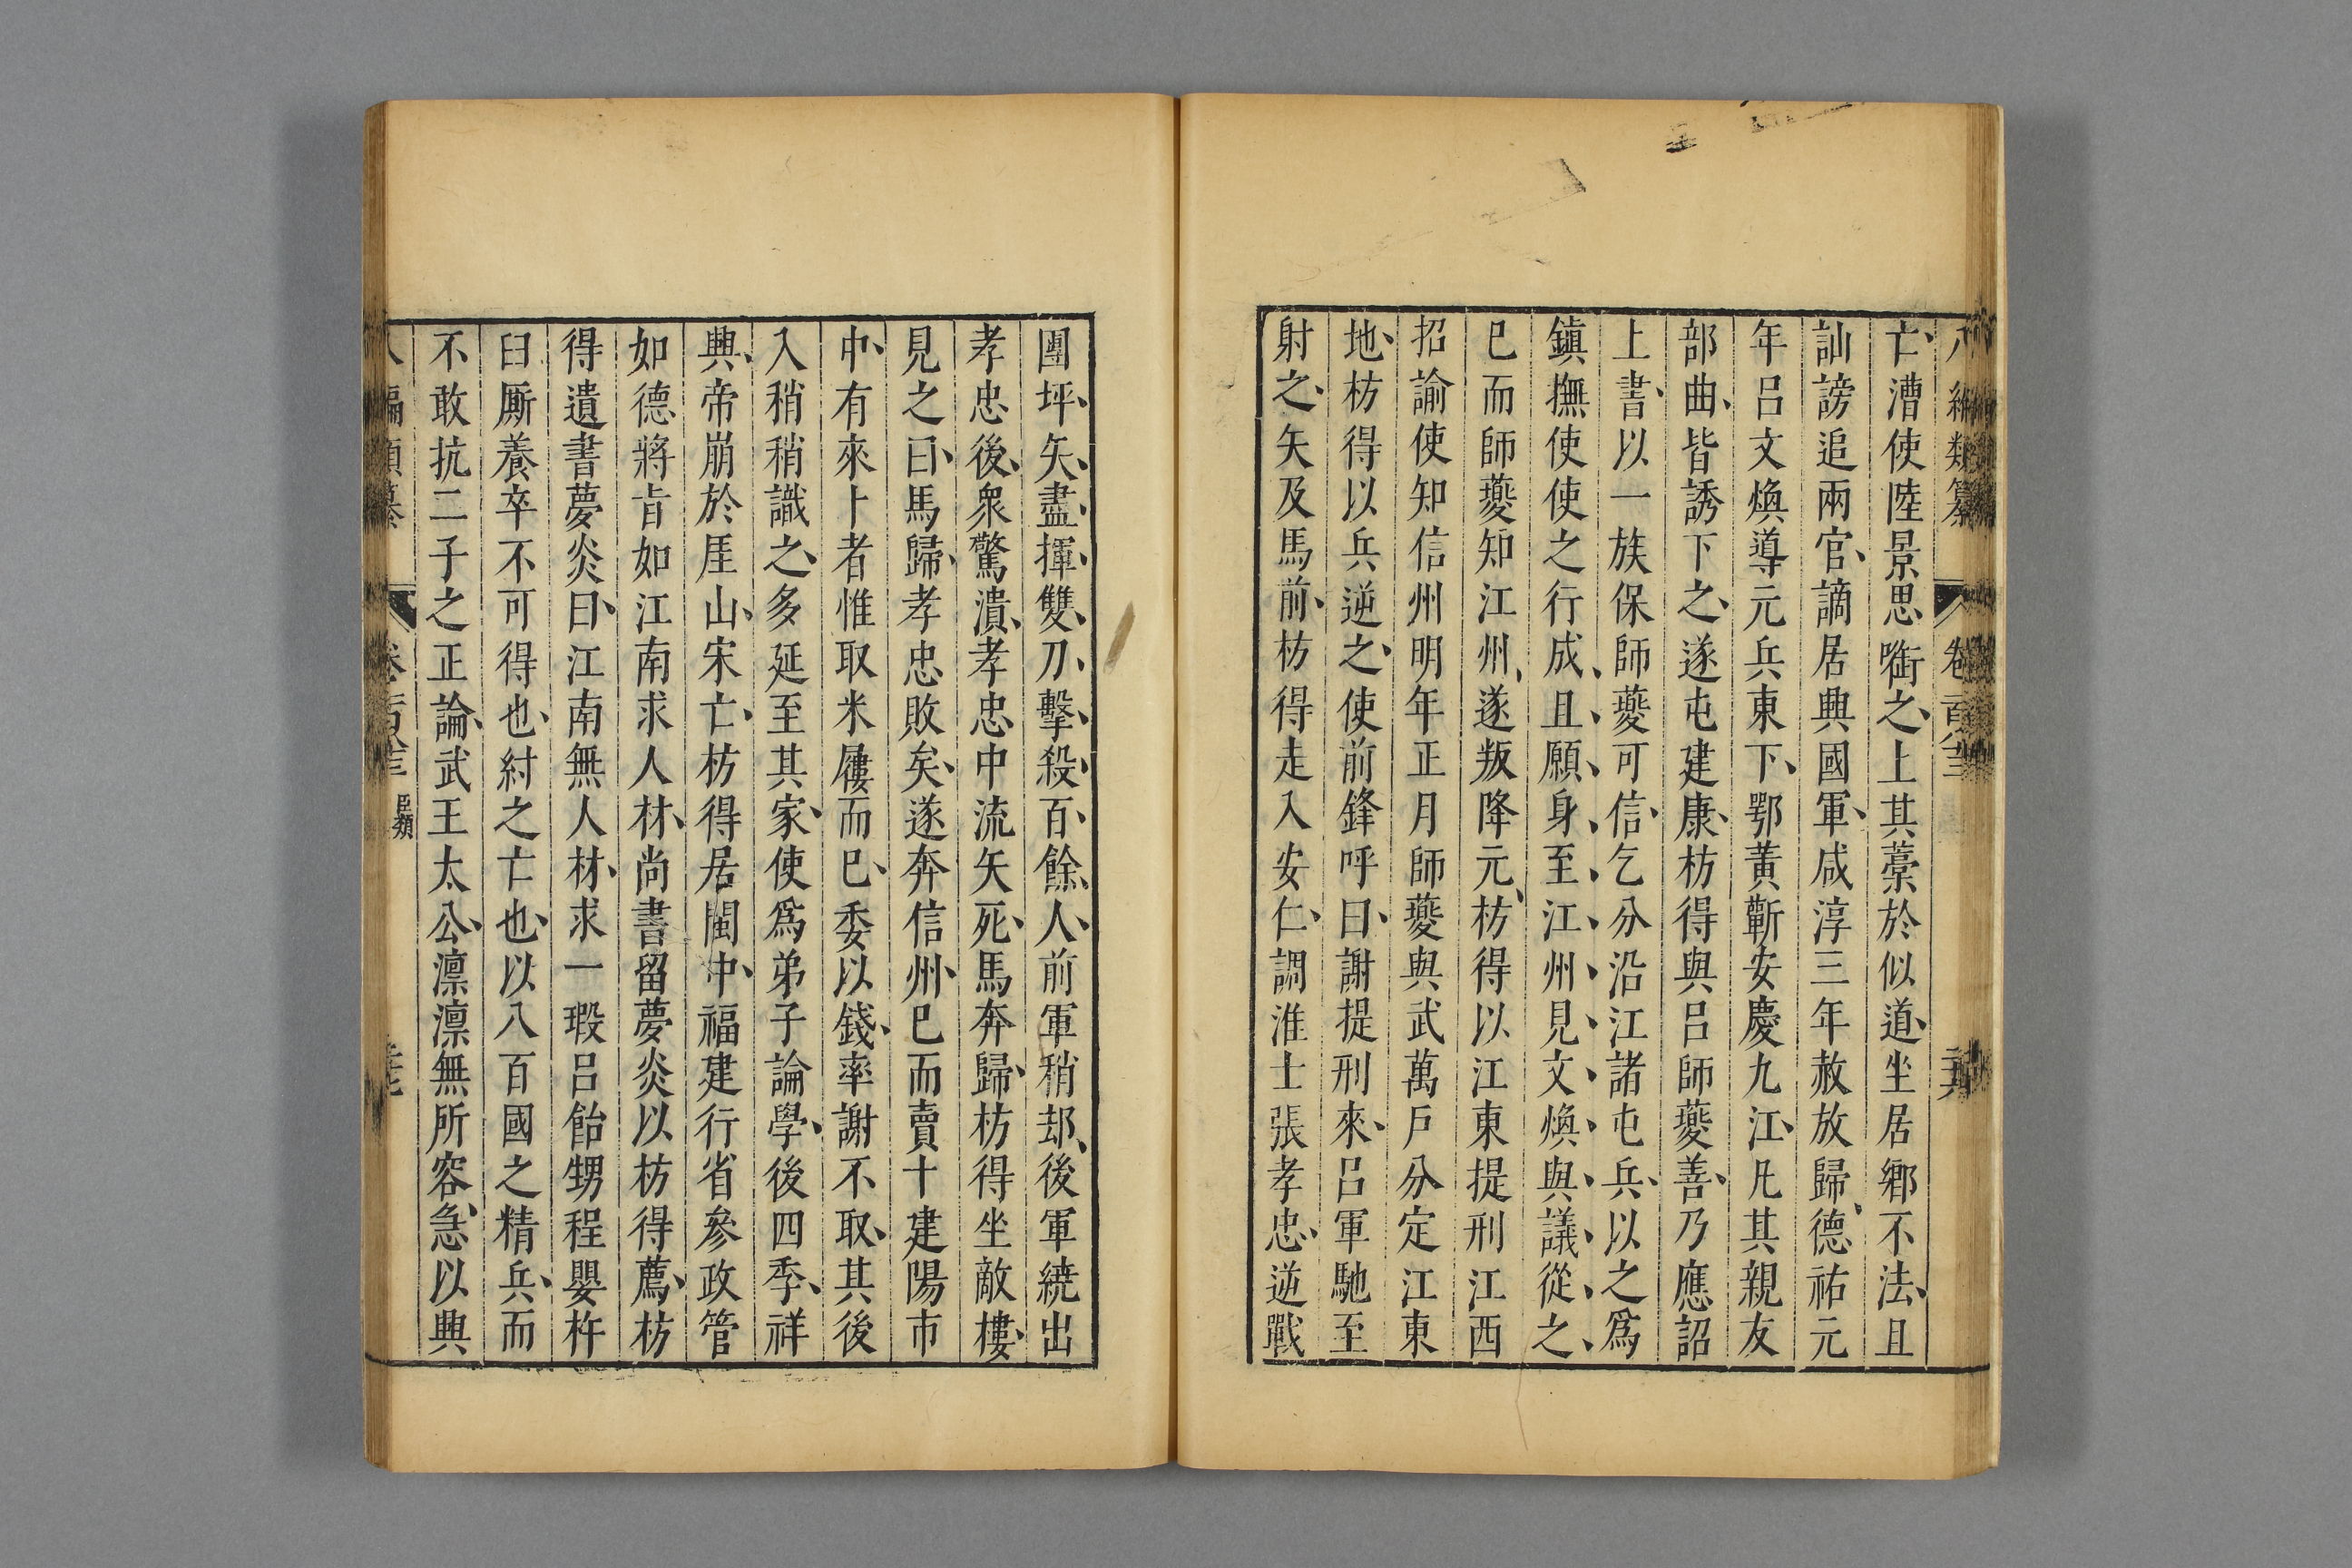 八編類纂 卷一百八十三
亡、漕使陸景思㗸之、上其藁於似道、坐居鄉不法、且
訕謗追兩官、謫居興國軍、咸淳三年赦放歸、德祐元
年呂文煥導元兵東下、鄂黃蘄安慶九江、凡其親友
部曲、皆誘下之、遂屯建康、枋得與呂師夔善、乃應詔
上書、以一族保師夔可信、乞分沿江諸屯兵、以之爲
鎮撫使使之行成、且、願、身、至、江、州、見、文、煥、與、議、從、之、
巳而師夔知江州、遂叛降元、枋得以江東提刑江西
招諭使知信州明年正月師夔與武萬戸分定江東
地、枋得以兵逆之、使前鋒呼曰、謝提刑來、呂軍馳至
射之、矢及馬前、枋得走入安仁、調淮士張孝忠、逆戰
團坪、矢、盡、揮、雙、刀、擊、殺、百、餘、人、前軍稍却、後軍繞出
孝忠後、衆驚潰、孝忠中流矢死、馬奔歸、枋得坐敵樓、
見之曰、馬歸、孝忠敗矣、遂奔信州、巳而賣卜建陽市
中、有來卜者惟取米屨而巳、委以錢、率謝不取、其後
入稍稍識之、多延至其家、使爲弟子論學、後四季、祥
興、帝崩於厓山、宋亡、枋得居閩中、福建行省參政管
如德將肯如江南求人材、尚書留夢炎以枋得薦、枋
得遺書夢炎曰、江南無人材、求一瑕呂飴甥程嬰杵
臼厮養卒不可得也、紂之亡也、以八百國之精兵、而
不敢抗二子之正論、武王太公、凛凛無所容、急以興
八編類纂 卷一百八十三 臣類